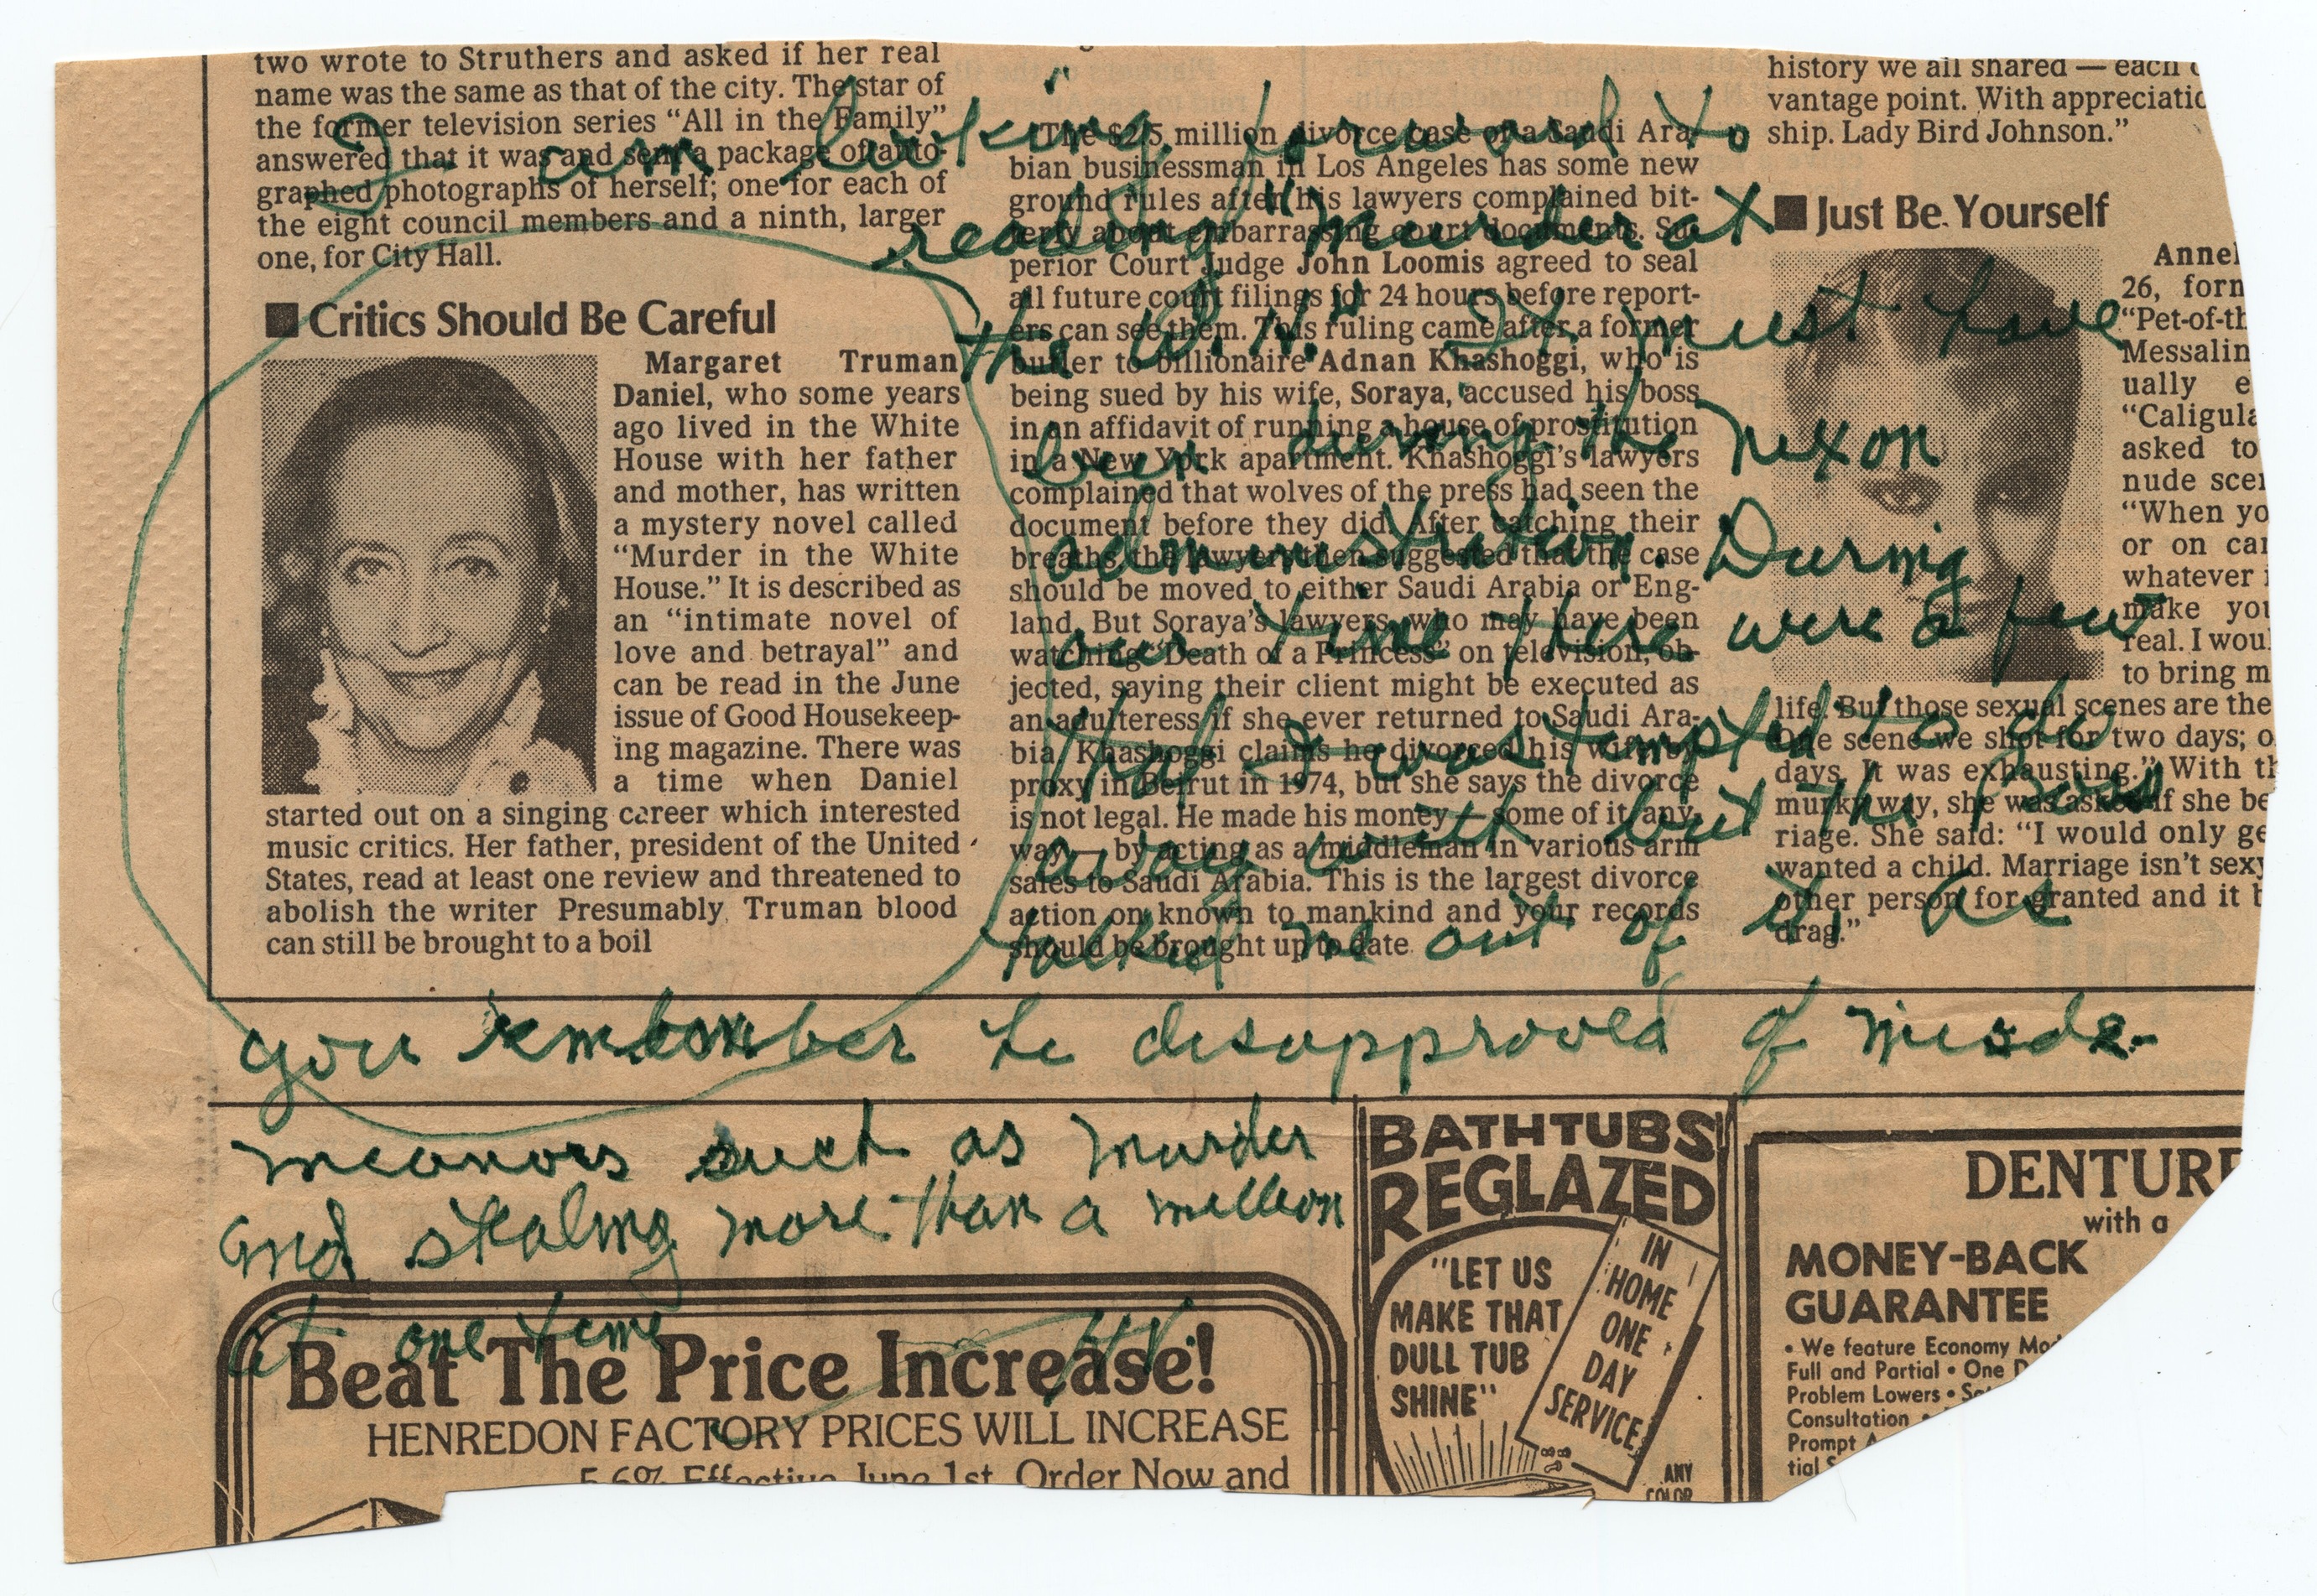 two wrote to Struthers and asked if her real
name was the same as that of the city. The star of
the former television series “All in the Family”
answered that it was and sent a package of auto-
graphed photographs of herself; one for each of
the eight council members and a ninth, larger
one, for City Hall.
■ Critics Should Be Careful
Margaret Truman
Daniel, who some years
ago lived in the White
House with her father
and mother, has written
a mystery novel called
“Murder in the White
House.” It is described as
an “intimate novel of
love and betrayal” and
can be read in the June
issue of Good Housekeep-
ing magazine. There was
a time when Daniel
started out on a singing career which interested
music critics. Her father, president of the United
States, read at least one review and threatened to
abolish the writer Presumably Truman blood
can still be brought to a boil
The $2.5 million divorce case of a Saudi Ara-
bian businessman in Los Angeles has some new
ground rules after his lawyers complained bit-
terly about embarrassing court documents. Su-
perior Court Judge John Loomis agreed to seal
all future court filings for 24 hours before report-
ers can see them. This ruling came after a former
butler to billionaire Adnan Khashoggi, who is
being sued by his wife, Soraya, accused his boss
in an affidavit of running a house of prostitution
in a New York apartment. Khashoggi’s lawyers
complained that wolves of the press had seen the
document before they did. After catching their
breaths, the lawyers then suggested that the case
should be moved to either Saudi Arabia or Eng-
land. But Soraya’s lawyers, who may have been
watching “Death of a Princess” on television, ob-
jected, saying their client might be executed as
an adulteress if she ever returned to Saudi Ara-
bia. Khashoggi claims he divorced his wife by
proxy in Beirut in 1974, but she says the divorce
is not legal. He made his money — some of it, any-
way — by acting as a middleman in various arm
sales to Saudi Arabia. This is the largest divorce
action on known to mankind and your records
should be brought up to date.
history we all shared — each
vantage point. With appreciatio
ship. Lady Bird Johnson.”
■ Just Be Yourself
Annel
26, form
“Pet-of-th
Messalin
ually e
“Caligula
asked to
nude scen
“When yo
or on cam
whatever i
make you
real. I woul
to bring m
life. But those sexual scenes are the
One scene we shot for two days; o
days. It was exhausting.” With th
murky way, she was asked if she be
riage. She said: “I would only ge
wanted a child. Marriage isn’t sexy
other person for granted and it b
drag.”
I am looking forward to
reading "Murder at
the W.H." It must have
been during the Nixon
administration. During
our time there were a few
that I was tempted to do
away with but the Pres
talked me out of it, as
you remember he disapproved of misde-
meanors such as murder
and stealing more than a million
at one time
BATHTUBS
REGLAZED
"LET US
MAKE THAT
DULL TUB
SHINE"
IN
HOME
ONE
DAY
SERVICE
ANY
COLOR
DENTURE
with a
MONEY-BACK
GUARANTEE
• We feature Economy Mo
Full and Partial • One D
Problem Lowers •
Consultation •
Prompt
tial
Beat The Price Increase!
HENREDON FACTORY PRICES WILL INCREASE
5.6% Effective June 1st. Order Now and